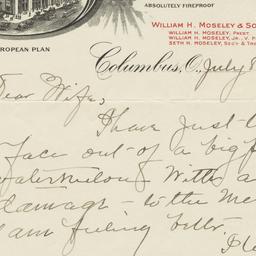 ABSOLUTELY FIREPROOF
WILLIAM H. MOSELEY & SO
WILLIAM H. MOSELEY, PREST.
WILLIAM H. MOSELEY, JR., V. P
SETH H. MOSELEY, SEC'Y & TRE
UROPEAN PLAN
Columbus, O., July 8
Dear Wife,
I have just
face out of a big
Watermelon
damage - to the Me
am feeling